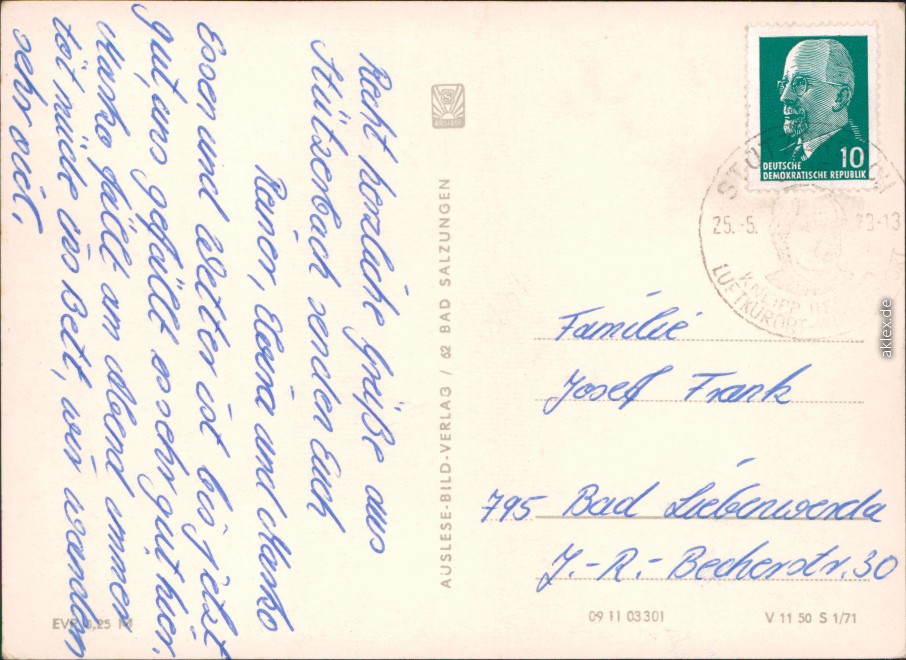 Recht herzliche Grüße aus
Stützerbach senden Euch
Rainer, Elvira und Marko
Essen und Wetter ist bis jetzt
gut, uns gefällt es sehr gut hier.
Marko fällt am Abend immer
tot müde ins Bett, wir wandern
sehr viel.
EVP 0,25 M
AUSLESE-BILD-VERLAG / 62 BAD SALZUNGEN
DEUTSCHE
DEMOKRATISCHE REPUBLIK
10
25.-5.
-13
LUFTKURORT
Familie
Josef Frank
795 Bad Liebenwerda
J.-R.-Becherstr. 30
09 11 03301
V 11 50 S 1/71
aklex.de